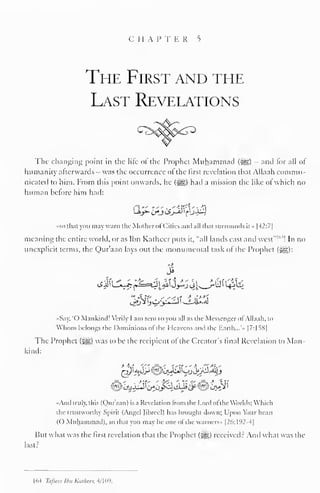 CHAPTER 5
THE FIRST AND THE
LAST REVELATIONS
The changing point in the life of the Prophet Muḥammad (ﷺ) – and for all of
humanity afterwards – was the occurrence of the first revelation that Allaah commu-
nicated to him. From this point onwards, he (ﷺ) had a mission the like of which no
human before him had:
لِّتُنذِرَ أُمَّ الْقُرَىٰ وَمَنْ حَوْلَهَا
«so that you may warn the Mother of Cities and all that surrounds it.» [42:7]
meaning the entire world, or as Ibn Katheer puts it, "all lands east and west". In no
unexplicit terms, the Qur'aan lays out the monumental task of the Prophet (ﷺ):
قُلْ
يَا أَيُّهَا النَّاسُ إِنِّي رَسُولُ اللَّهِ إِلَيْكُمْ جَمِيعًا الَّذِي
لَهُ مُلْكُ السَّمَاوَاتِ وَالْأَرْضِ
«Say, 'O Mankind! Verily I am sent to you all as the Messenger of Allaah, to
Whom belongs the Dominions of the Heavens and the Earth...'» [7:158]
The Prophet (ﷺ) was to be the recipient of the Creator's final Revelation to Man-
kind:
وَإِنَّهُ لَتَنزِيلُ رَبِّ الْعَالَمِينَ نَزَلَ بِهِ الرُّوحُ
الْأَمِينُ عَلَىٰ قَلْبِكَ لِتَكُونَ مِنَ الْمُنذِرِينَ
«And truly, this (Qur'aan) is a Revelation from the Lord of the Worlds; Which
the trustworthy Spirit (Angel Jibreel) has brought down; Upon Your heart
(O Muḥammad), so that you may be one of the warners» [26:192-4]
But what was the first revelation that the Prophet (ﷺ) received? And what was the
last?
164 Tafseer Ibn Katheer, 4/109.